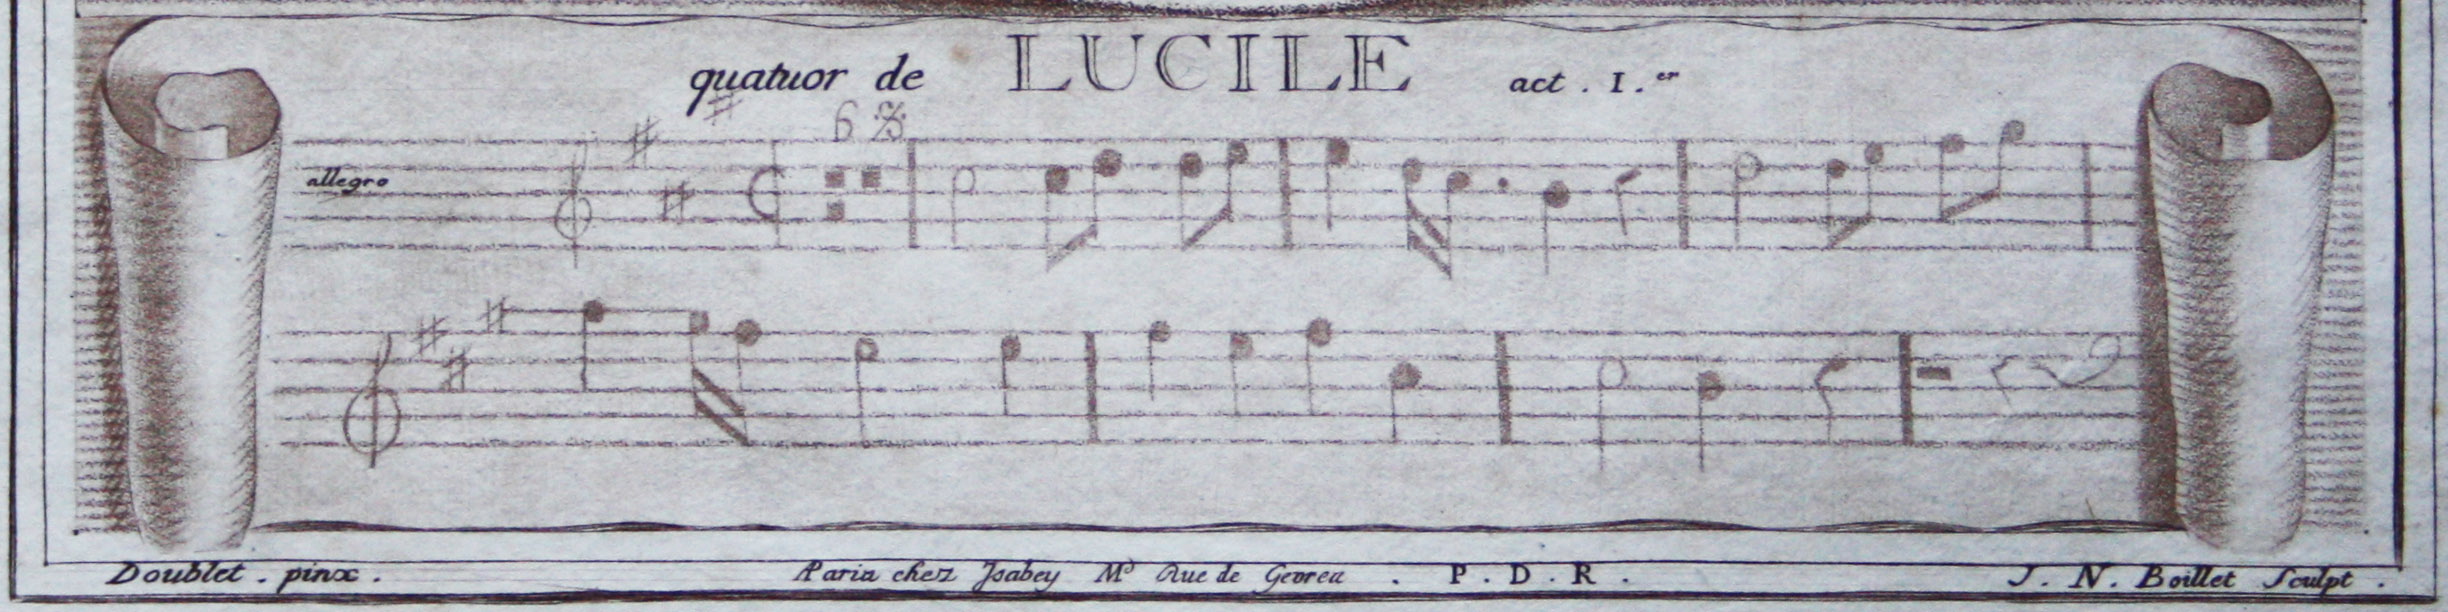 quatuor de LUCILE act. 1.er
6
allegro
Doublet. pinx. Paris chez Isabey Md Rue de Gevres. P.D.R. J. N. Boillet Sculpt.